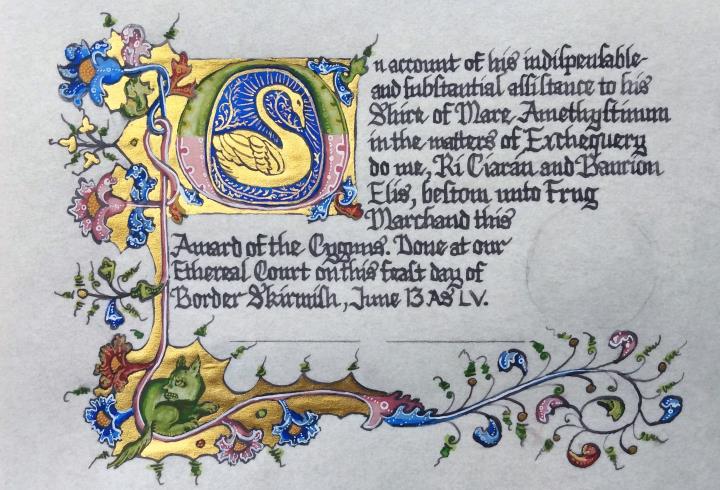 On account of his indispensable
and substantial assistance to his
Shire of Mare Amethystinum
in the matters of Exchequery
do we, Ri Ciarán and Banrion
Elis, bestow unto Frug
Marchand this
Award of the Cygnus. Done at our
Ethereal Court on this feast day of
Border Skirmish, June 13 AS LV.